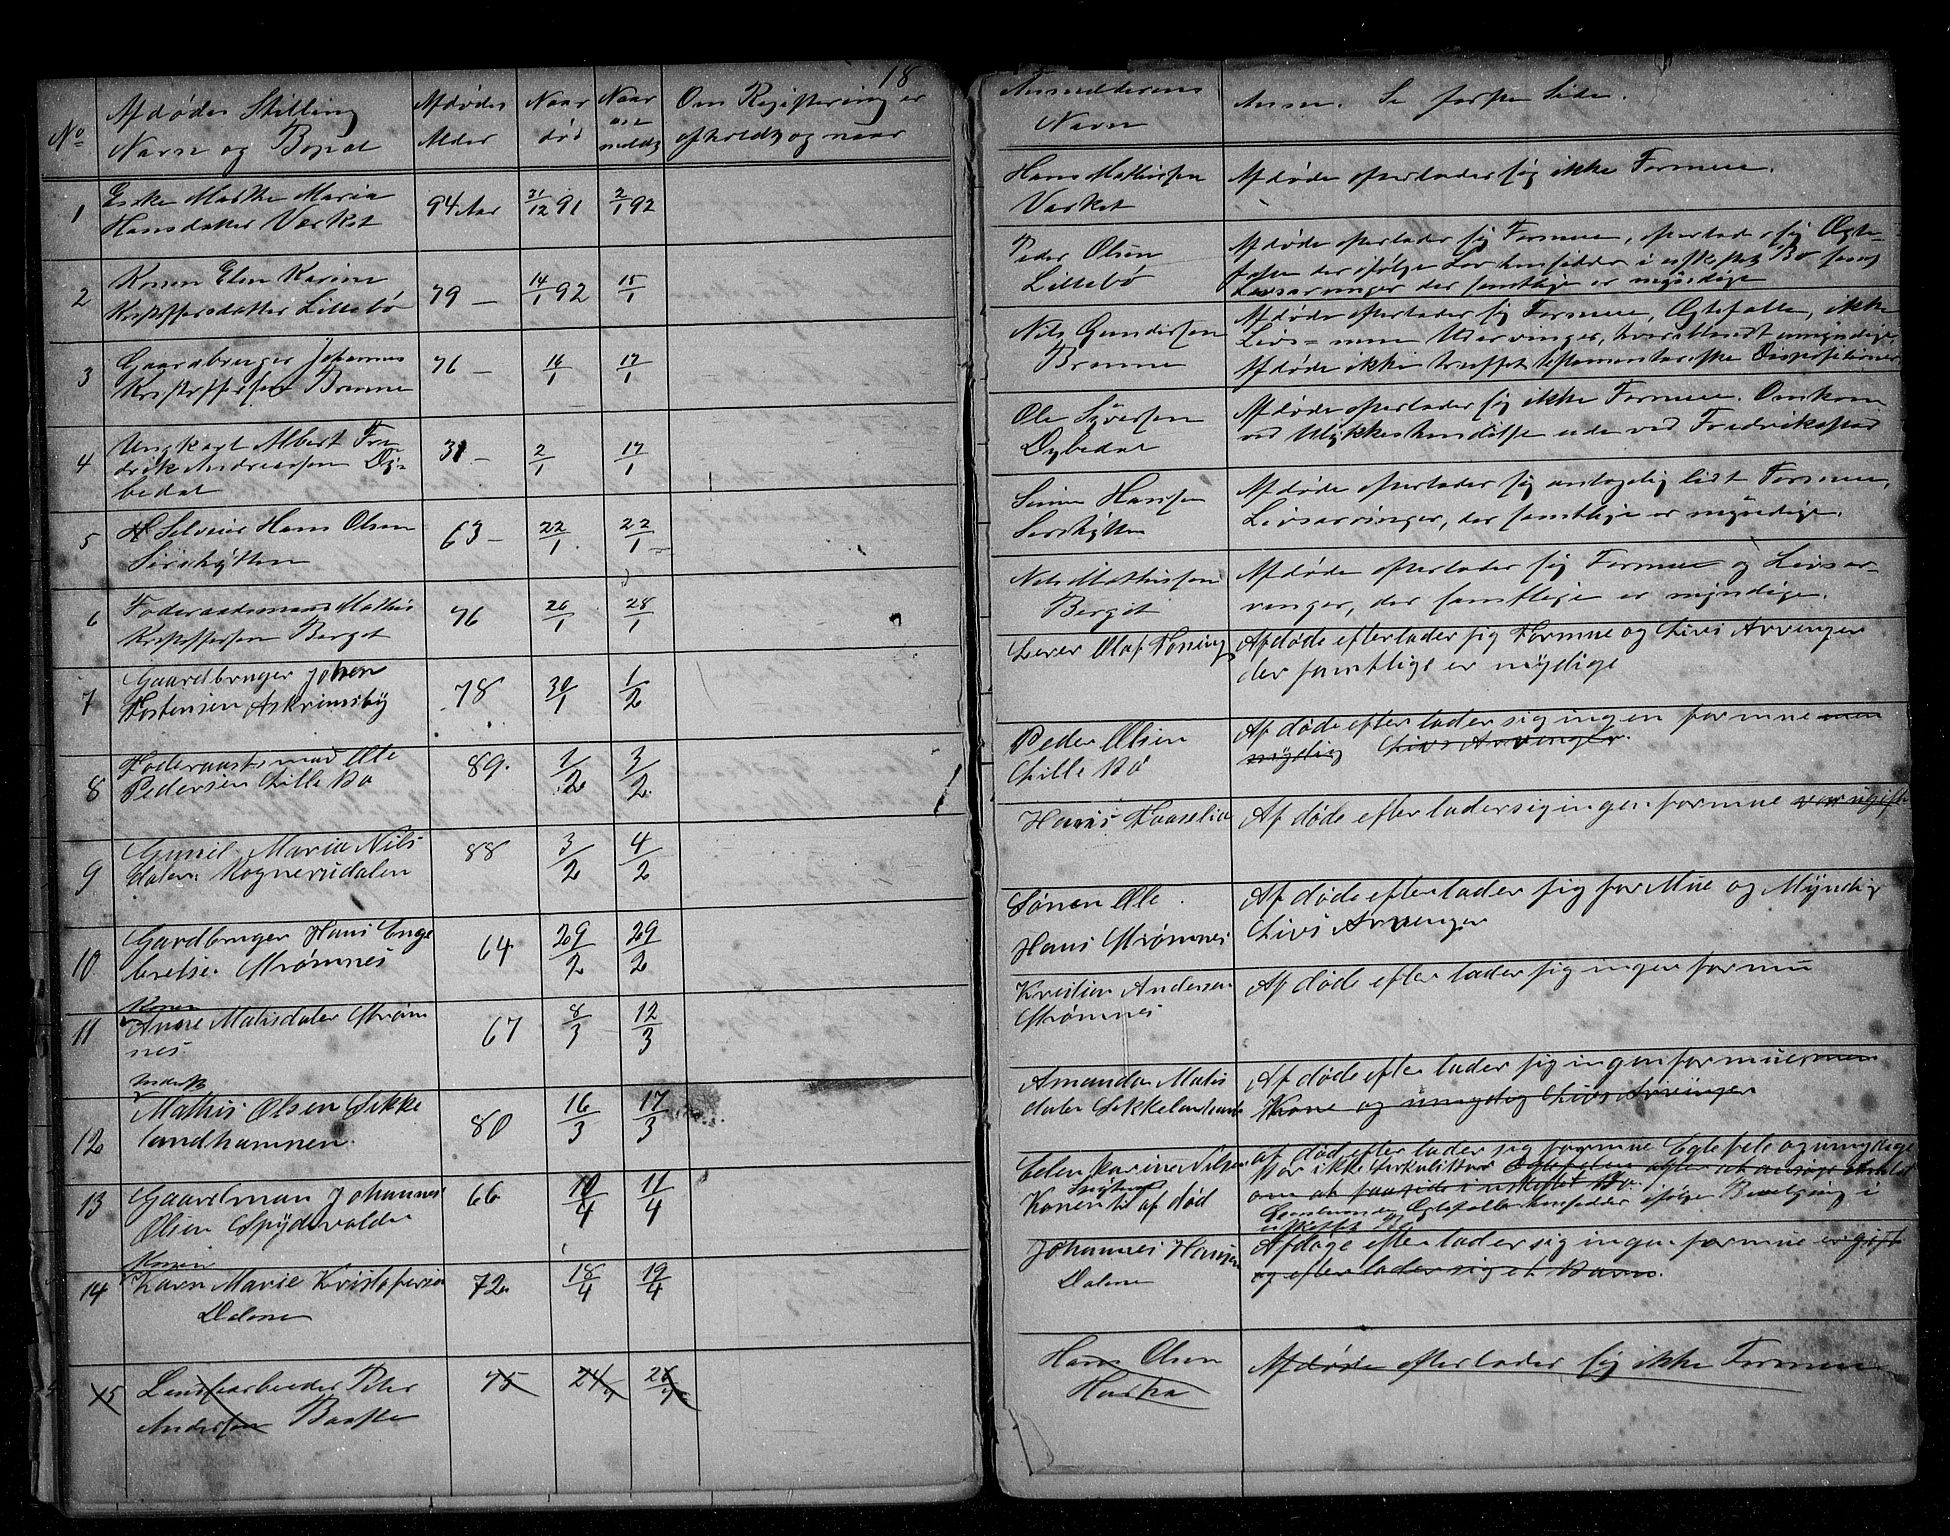 18
No
Afdødes Stilling
Navn og Bopæl
Afdødes
Alder
Naar
død
Naar
an
meldt
Om Registrering er
afholdt og naar
1
Enke Marthe Maria
Hansdatter Værket
94 Aar
31/12 91
2/1 92
2
Konen Elen Karine
Kristoffersdatter Lillebø
79 —
14/1 92
15/1
3
Gaardbruger Johannes
Kristoffersen Brenne
76 —
16/1
17/1
4
Ungkarl Albert Fre-
drik Andreassen Dy-
bedal
31 —
2/1
17/1
5
Selveier Hans Olsen
Sørshytten
63 —
22/1
22/1
6
Føderaadsmand Mathis
Kristoffersen Berget
76
26/1
28/1
7
Gaardbruger Johan
Tostensen Askrimsby
78
30/1
1/2
8
Føderaads mad Ole
Pedersen Lille Bø
89.
1/2
3/2
9
Gunil Maria Nils
dater Kognerudalen
88
3/2
4/2
10
Gardbruger Hans Enge
bretse. Strømnes
64
29/2
29/2
11
Konen
Anne Matisdater Strøm
nes
67
8/3
12/3
12
Inderst
Mathis Olsen Sikke
landhamnen
80
16/3
17/3
13
Gaardman Johannes
Olsen Spydevolden
66
10/4
11/4
14
Konen
Karn Marie Kristofersen
Dalene
72
18/4
19/4
15
Peter
Andersen Baaste
75
24/4
26/4
Anmelderens
Navn
Anm. Se første Side.
Hans Mathissen
Værket
Afdøde efterlader sig ikke Formue.
Peder Olsen
Lillebø
Afdøde efterlader sig Formue, efterlader sig Ægte-
fælle der ifølge Lov hensidder i uskiftet Bo samt
Livsarvinger der samtlige er myndige
Nils Gundersen
Brenne
Afdøde efterlader sig Formue, Ægtefælle, ikke
Livs- men Udarvinger, hvoriblandt umyndige
Afdøde ikke truffet testamentariske Dispositioner
Ole Syversen
Dybedal
Afdøde efterlader sig ikke Formue. Omkom
ved Ulykkeshændelse ude ved Fredrikstad
Simen Hansen
Sørshytten
Afdøde efterlader sig antagelig lidt Formue,
Livsarvinger, der samtlige er myndige.
Nils Mathissen
Berget
Afdøde efterlader sig Formue og Livsar-
vinger, der samtlige er myndige.
Lerer Olaf
Afdøde efterlader sig Formue og Livs Arvinger
der samtlige er mydige
Peder Olsen
Lille Bø
Af døde efter lader sig ingen formue men
mydig Livs Arvinger.
Hans
Af døde efter lader sig ingen formue var ugift
Sønen Ole
Hans Strømnes
Af døde efter lader sig for Mue og Myndig
Livs Arvinger
Kristian Andersen
Strømnes
Af døde efter lader sig ingen formu
Amanda Matis
dater
Af døde efter lader sig ingen formue men
Kone og umydig Livs Arvinger
Elen Karine Nilsen
Konen til af død
af død efter lader sig formue Egtefele og umydige
Bevilgning i
uskiftet Bo
Johannes Hansen
Dalene
Afdøde efter lader sig ingen formue er gift
og efter lader sig et Barn.
Hans Olsen
Afdøde efterlader sig ikke Formue